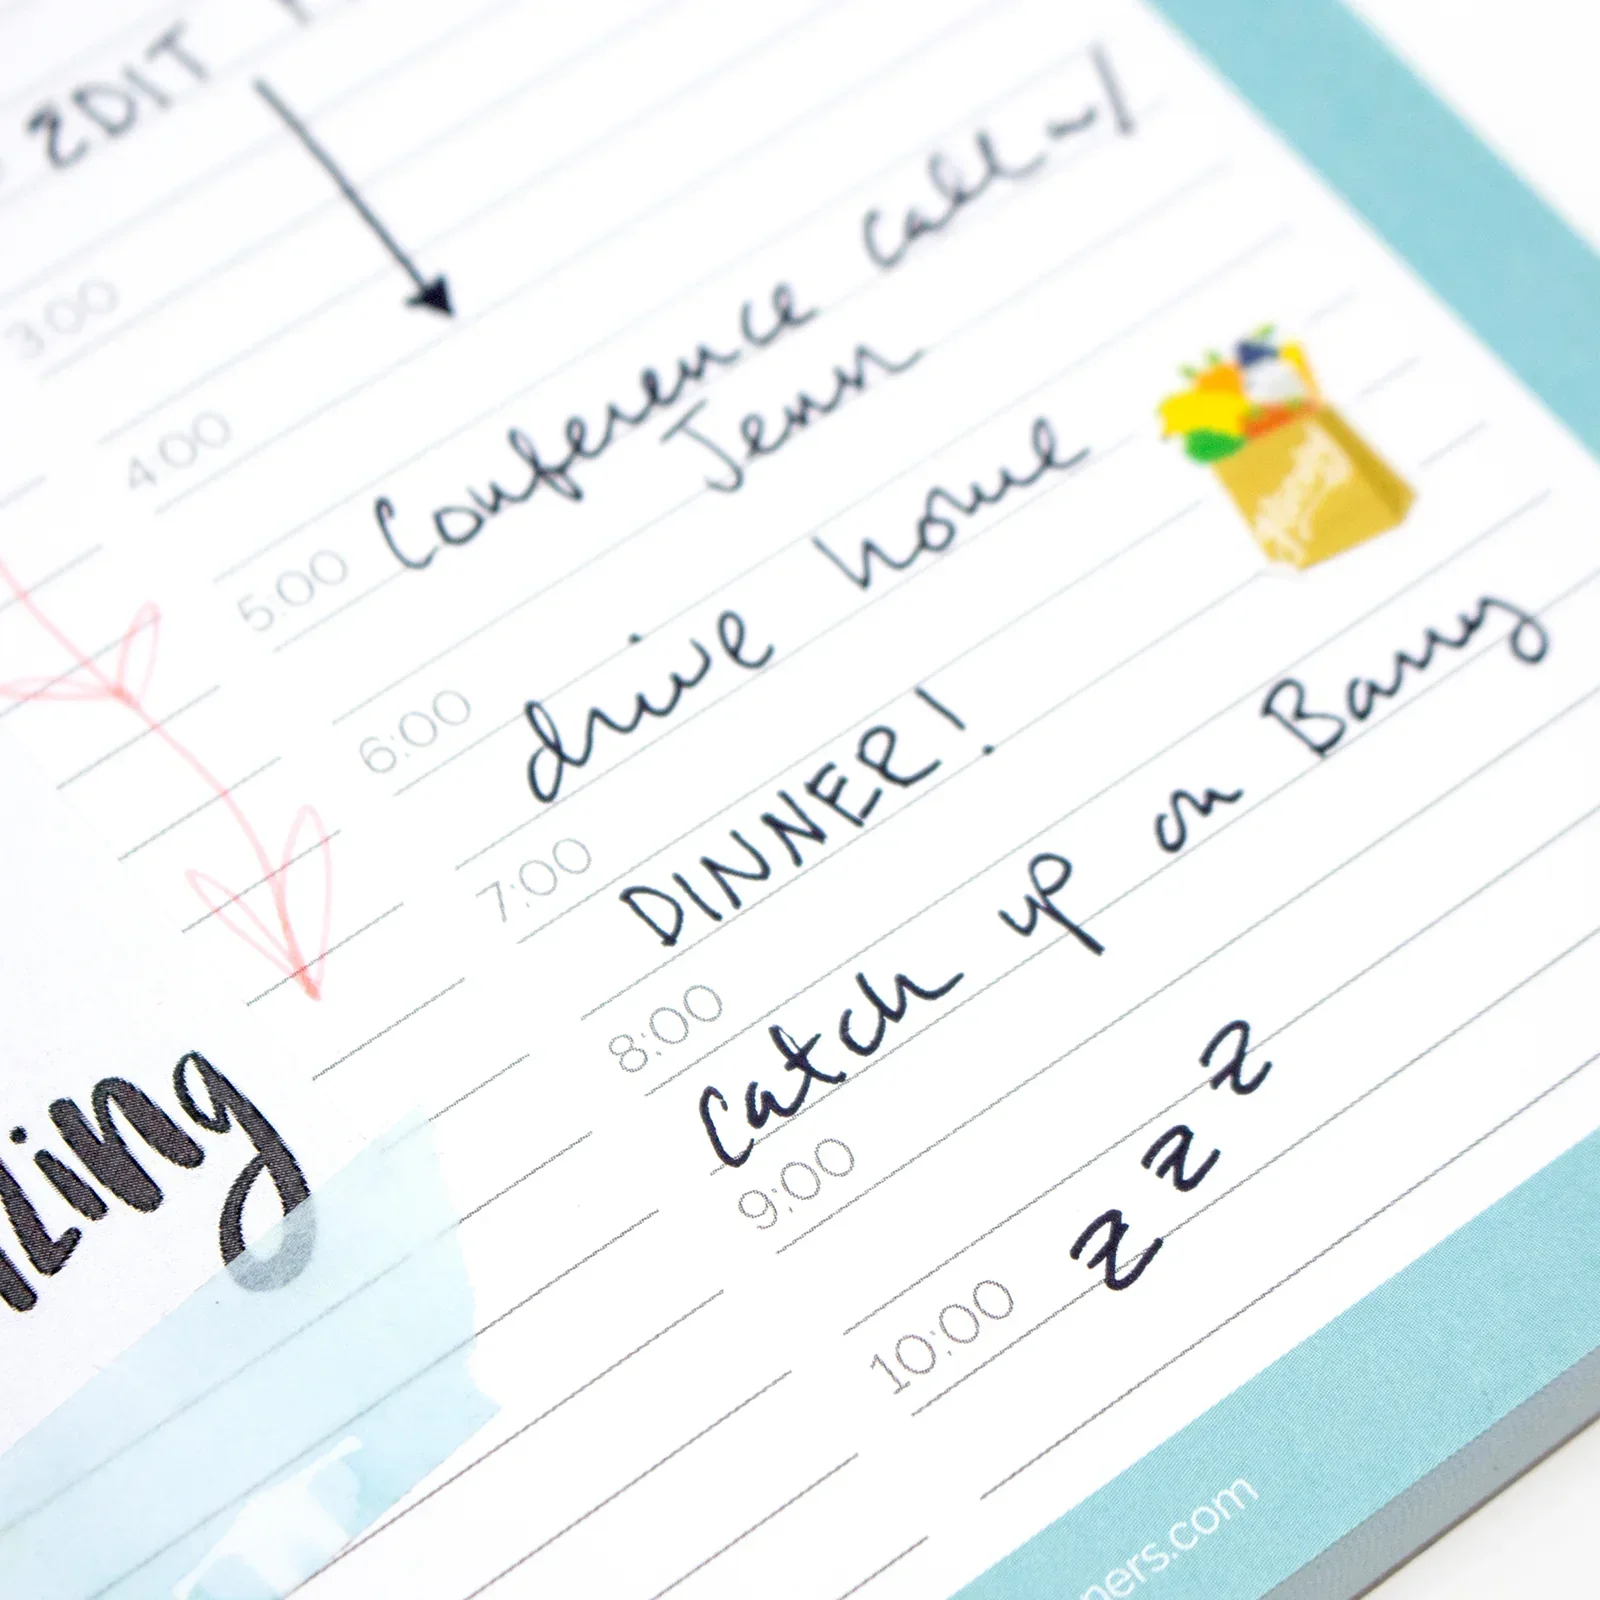 EDIT
3:00
4:00
5:00 Conference Call w/
Jenn
6:00 drive home
7:00 DINNER!
8:00
Catch up on Barry
9:00
z z z
10:00